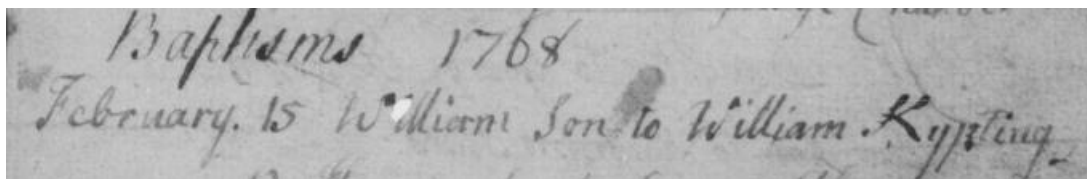 Baptisms 1768
February. 15 William Son to William Kypting